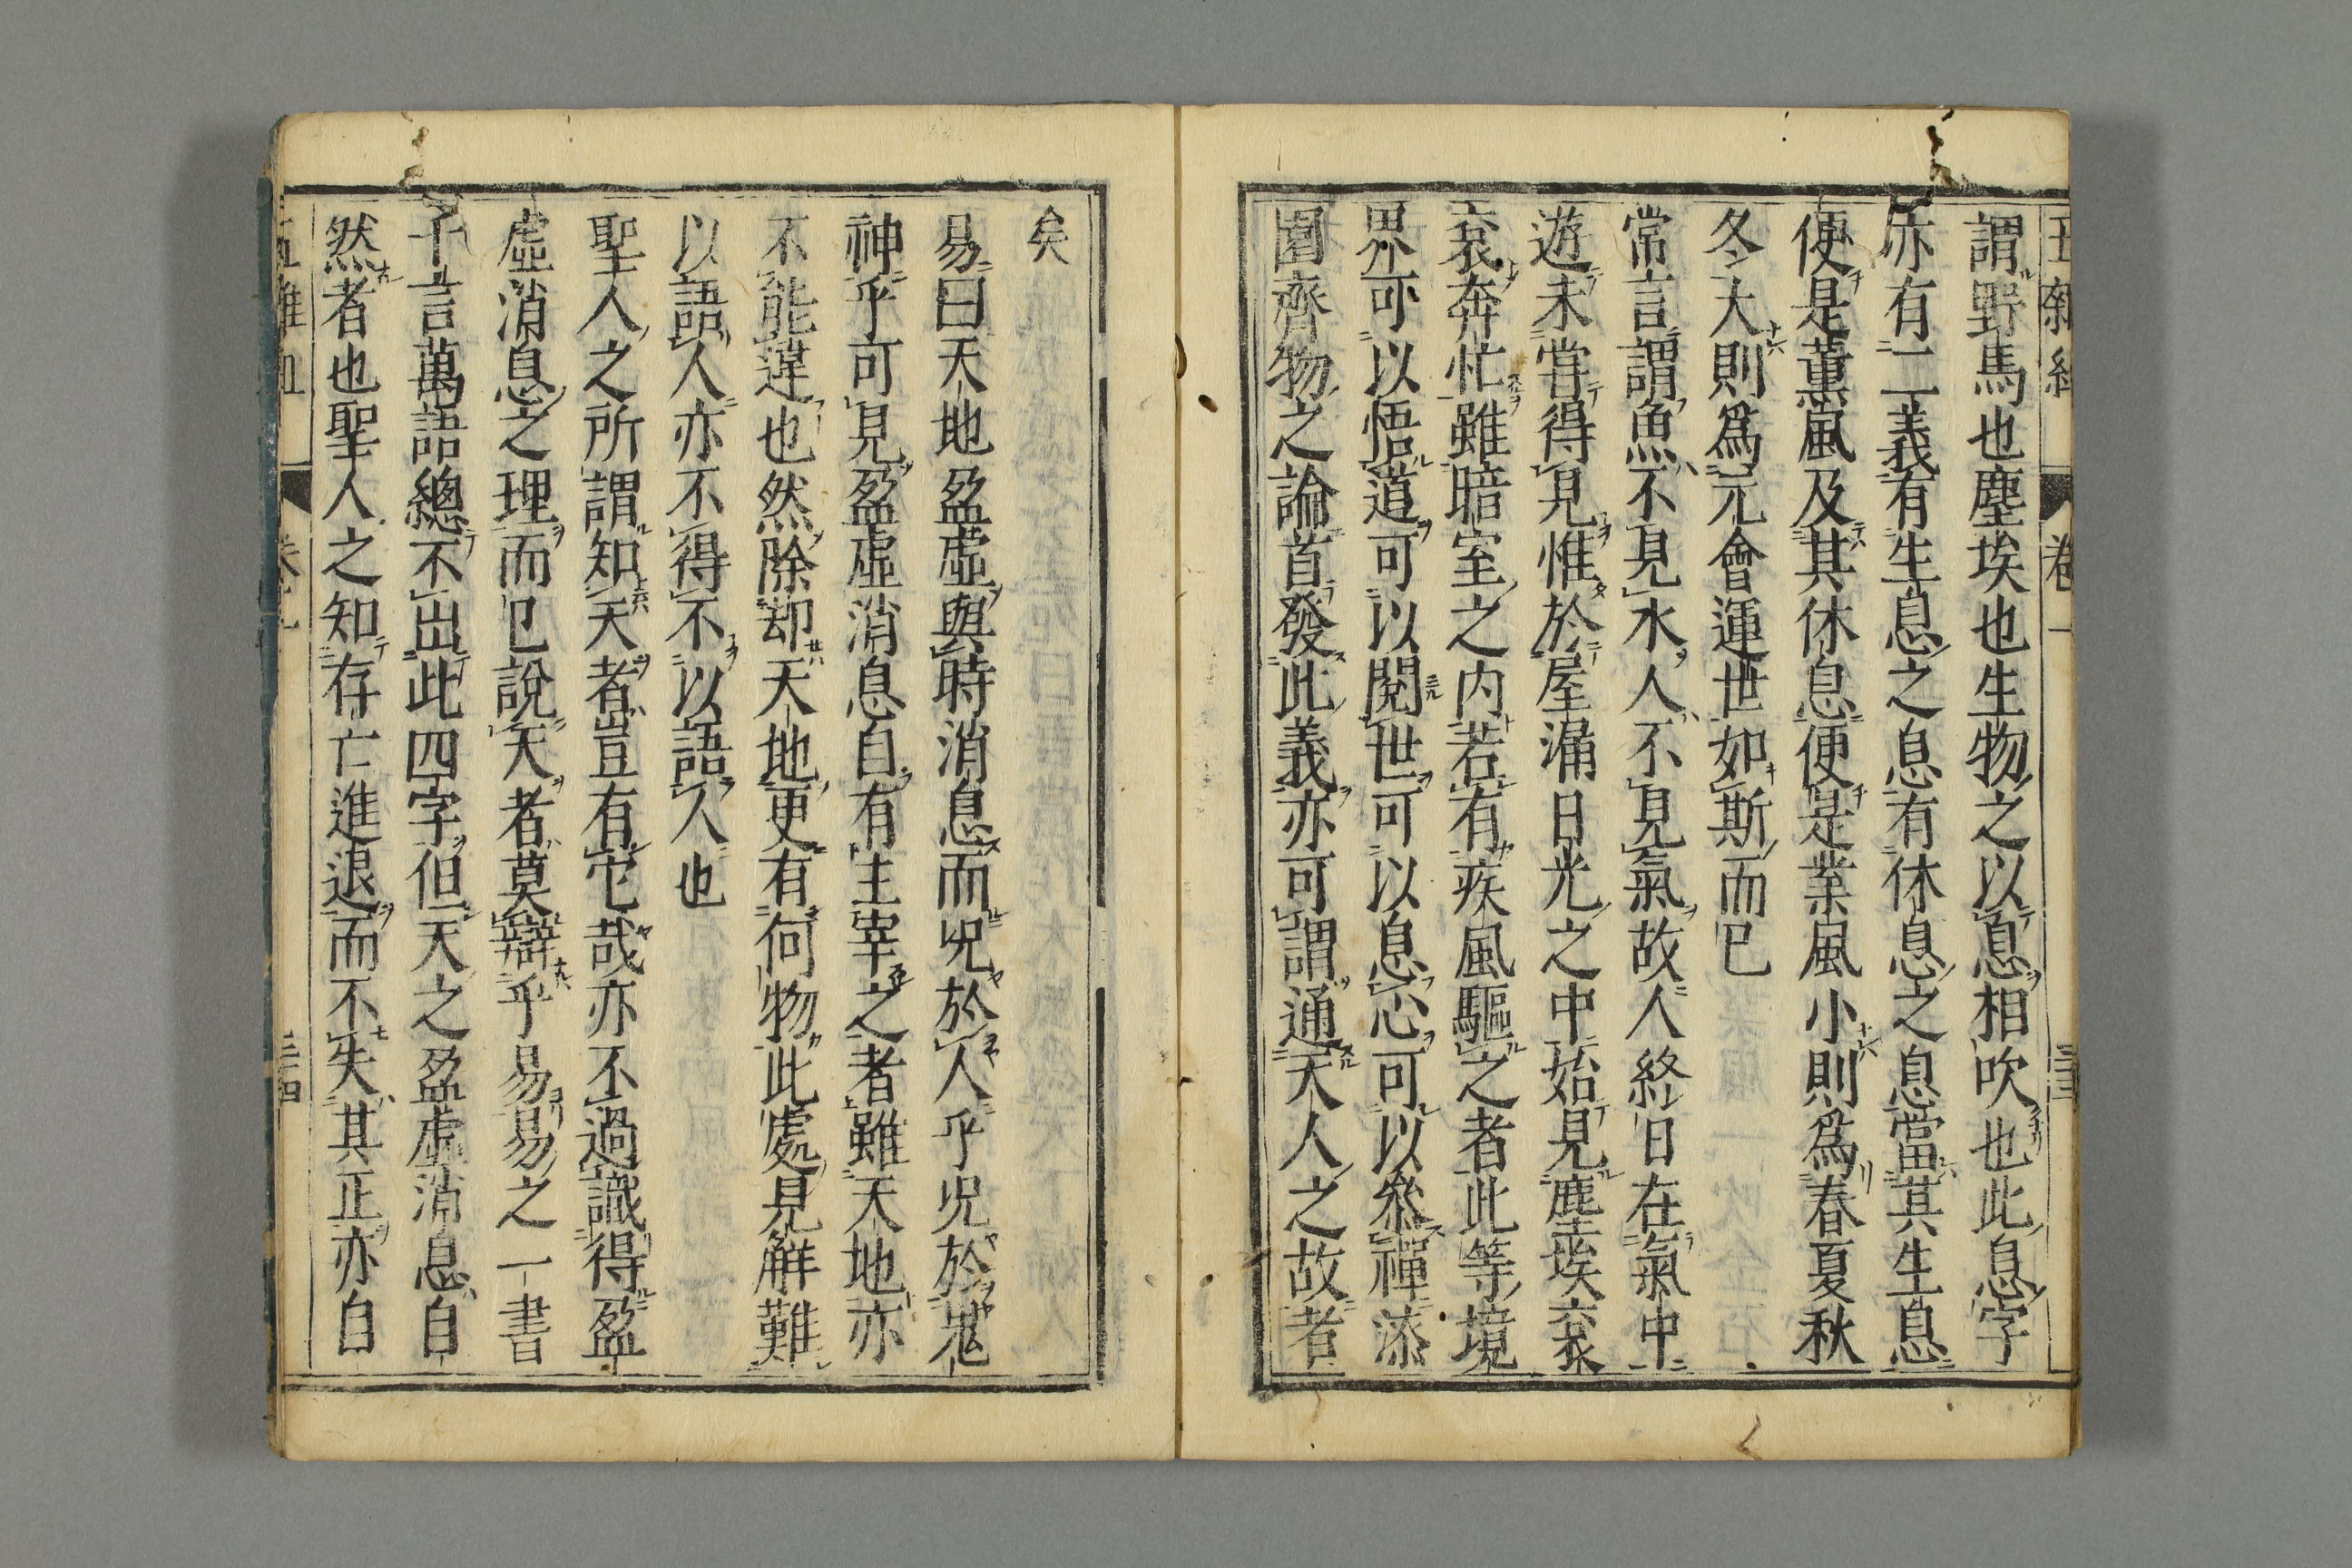 謂野馬也塵埃也生物之以息相吹也此息字
亦有二義有生息之息有休息之息當其生息
便是薫風及其休息便是業風小則爲春夏秋
冬大則爲元會運世如斯而已
常言謂魚不見水人不見氣故人終日在氣中
遊未嘗得見惟於屋漏日光之中始見塵埃袞
袞奔忙雖暗室之内若有疾風驅之者此等境
界可以悟道可以閱世可以息心可以參禪漆
園齊物之論首發此義亦可謂通天人之故者
矣
易曰天地盈虛與時消息而况於人乎况於鬼
神乎可見盈虛消息自有主宰之者雖天地亦
不能違也然除却天地更有何物此處見解難
以語人亦不得不以語人也
聖人之所謂知天者豈有它哉亦不過識得盈
虛消息之理而已說天者莫辯乎易易之一書
千言萬語總不出此四字但天之盈虛消息自
然者也聖人之知存亡進退而不失其正亦自